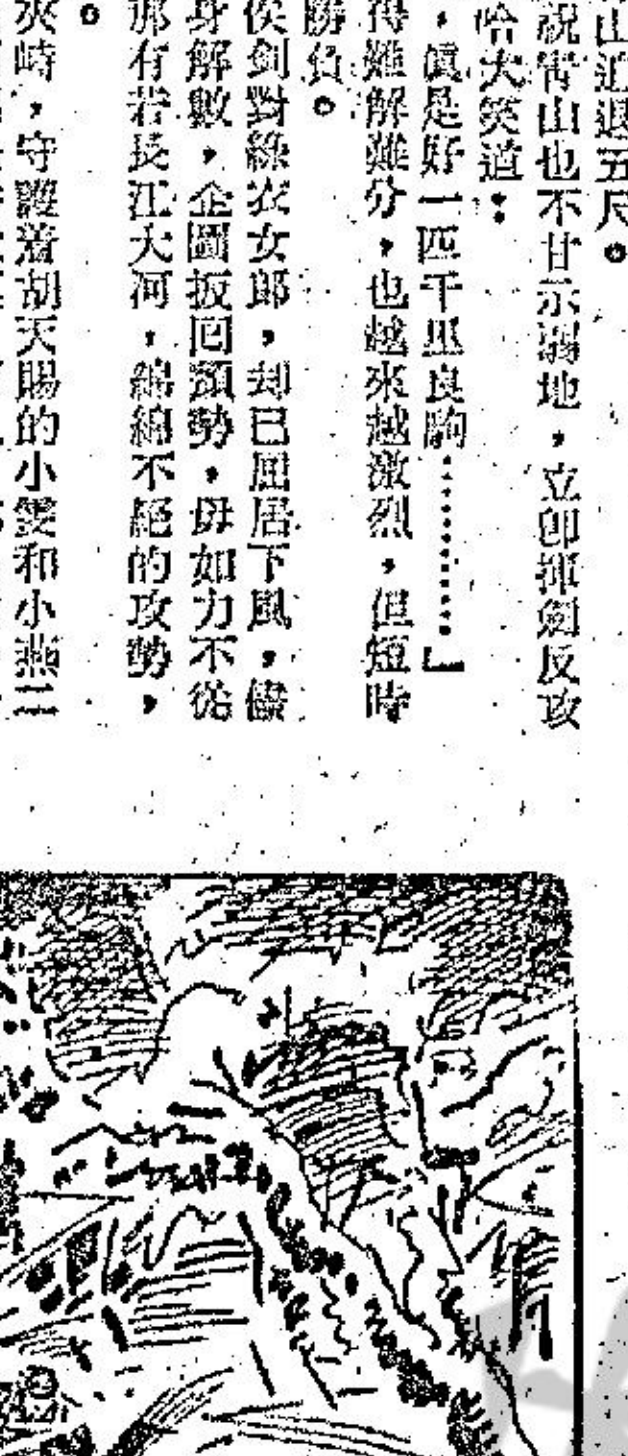 山迫退五尺。
說詩山也不甘示弱地，立卽揮劍反攻
哈大笑道：
，眞是好一匹千里良駒………』
得難解難分，也越來越激烈，但短時
勝負。
侯劍對綠衣女郎，却已屈居下風，儘
身解數，企圖扳囘頹勢，毋如力不從
那有若長江大河，綿綿不絕的攻勢，
。
夾峙，守護着胡天賜的小雯和小燕二